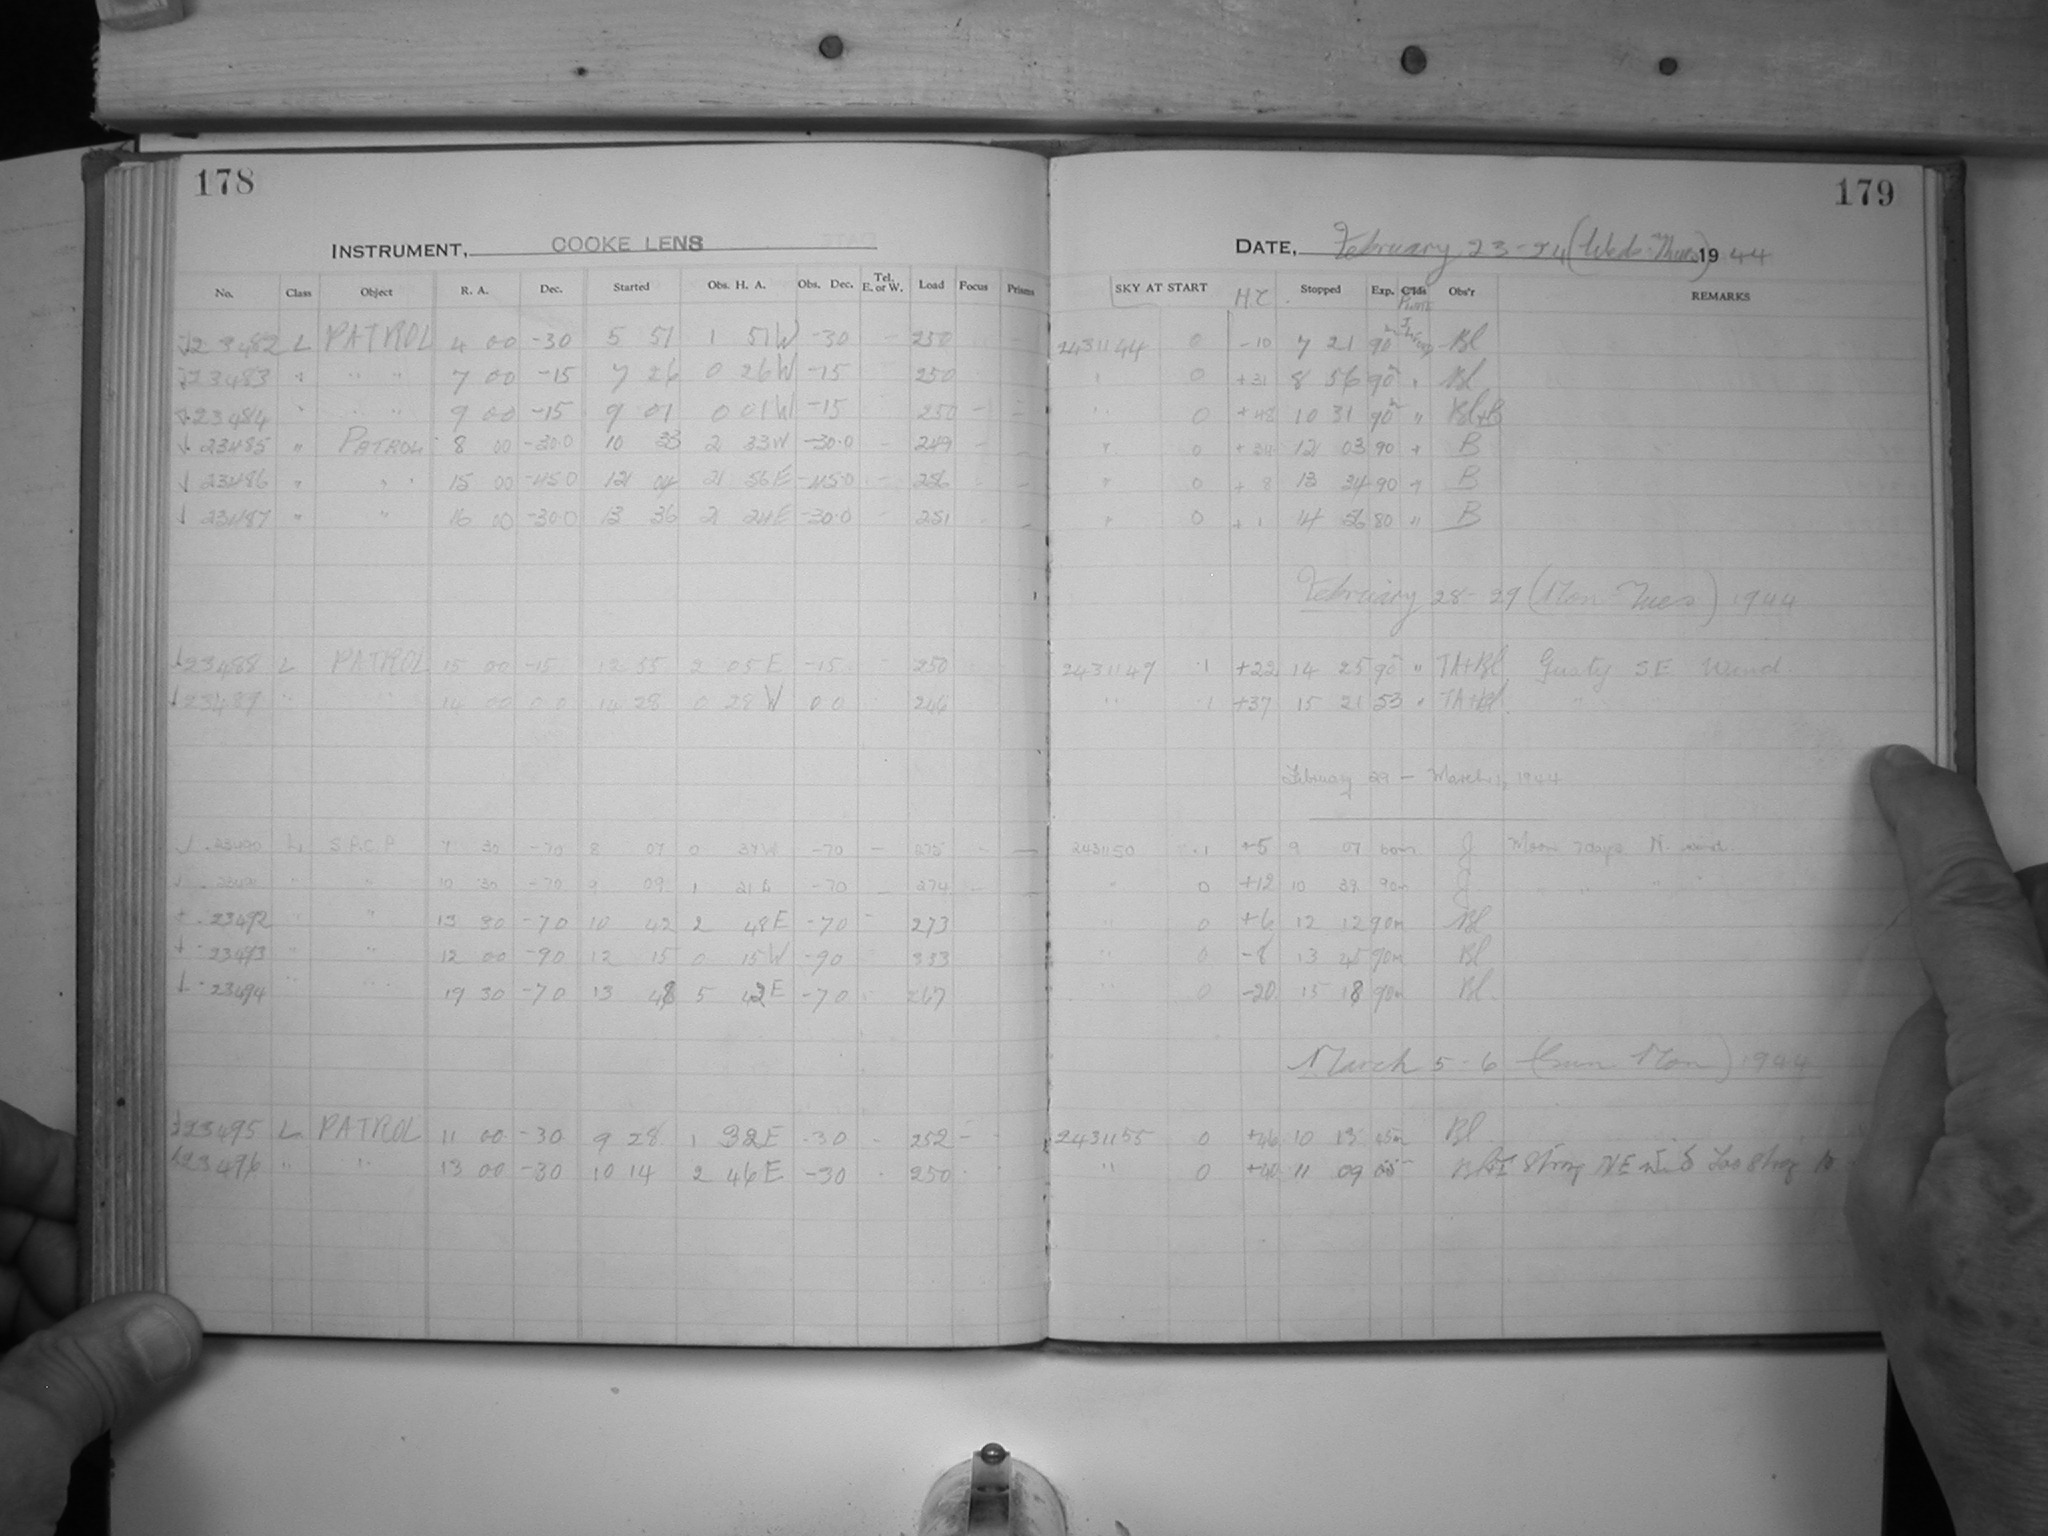 178
INSTRUMENT, COOKE LENS
No. Class Object R. A. Dec. Started Obs. H. A. Obs. Dec. Tel. E. or W. Load Focus Prisms
23482 L PATROL 4 00 -30 5 51 1 51 W -30 - 250
23483 " " " 7 00 -15 7 26 0 26 W -15 250
23484 " " " 9 00 -15 9 01 0 01 W -15 250 - -
23485 " PATROL 8 00 -30.0 10 33 2 33 W -30.0 - 249 - -
23486 " " " 15 00 -45.0 12 04 2 56 E -45.0 - 256 - -
23487 " " 16 00 -30.0 13 36 2 24 E -30.0 - 251 - -
23488 L PATROL 15 00 -15 12 55 2 05 E -15 250
23489 " " 14 00 0 0 14 28 0 28 W 0 0 246
23490 L S.A.C.P 7 30 -70 8 07 0 37 W -70 - 275 - -
" " 10 30 -70 9 09 1 21 E -70 - 274 - -
23492 " " 13 30 -70 10 42 2 48 E -70 - 273
23493 " " 12 00 -90 12 15 0 15 W -90 333
23494 " " 19 30 -70 13 48 5 42 E -70 267
23495 L PATROL 11 00 -30 9 28 1 32 E -30 - 252 - -
23496 " " 13 00 -30 10 14 2 46 E -30 250
179
DATE, February 23-24 (Weds-Thurs) 1944
SKY AT START H.C. Stopped Exp. Obs'r REMARKS
2431144 0 -10 7 21 90 Bl
" 0 +31 8 56 90 " Bl
" 0 +48 10 31 90 " Bl+B
" 0 12 03 90 " B
" 0 + 8 13 34 90 " B
" 0 + 1 14 56 80 " B
February 28-29 (Mon Tues) 1944
2431149 .1 +22 14 25 90 " TA+Bl Gusty S E Wind.
" .1 +37 15 21 53 " TA+Bl "
February 29 - March 1, 1944
2431150 .1 +5 9 07 60m J. Moon 7 days N. wind
" 0 +12 10 39 90m J. " " "
" 0 +6 12 12 90m Bl
" 0 -8 13 45 90m Bl
" 0 -20 15 18 90m Bl.
March 5-6 (Sun Mon) 1944
2431155 0 +46 10 13 45m Bl
" 0 +40 11 09 Strong NE wind Too Strong to